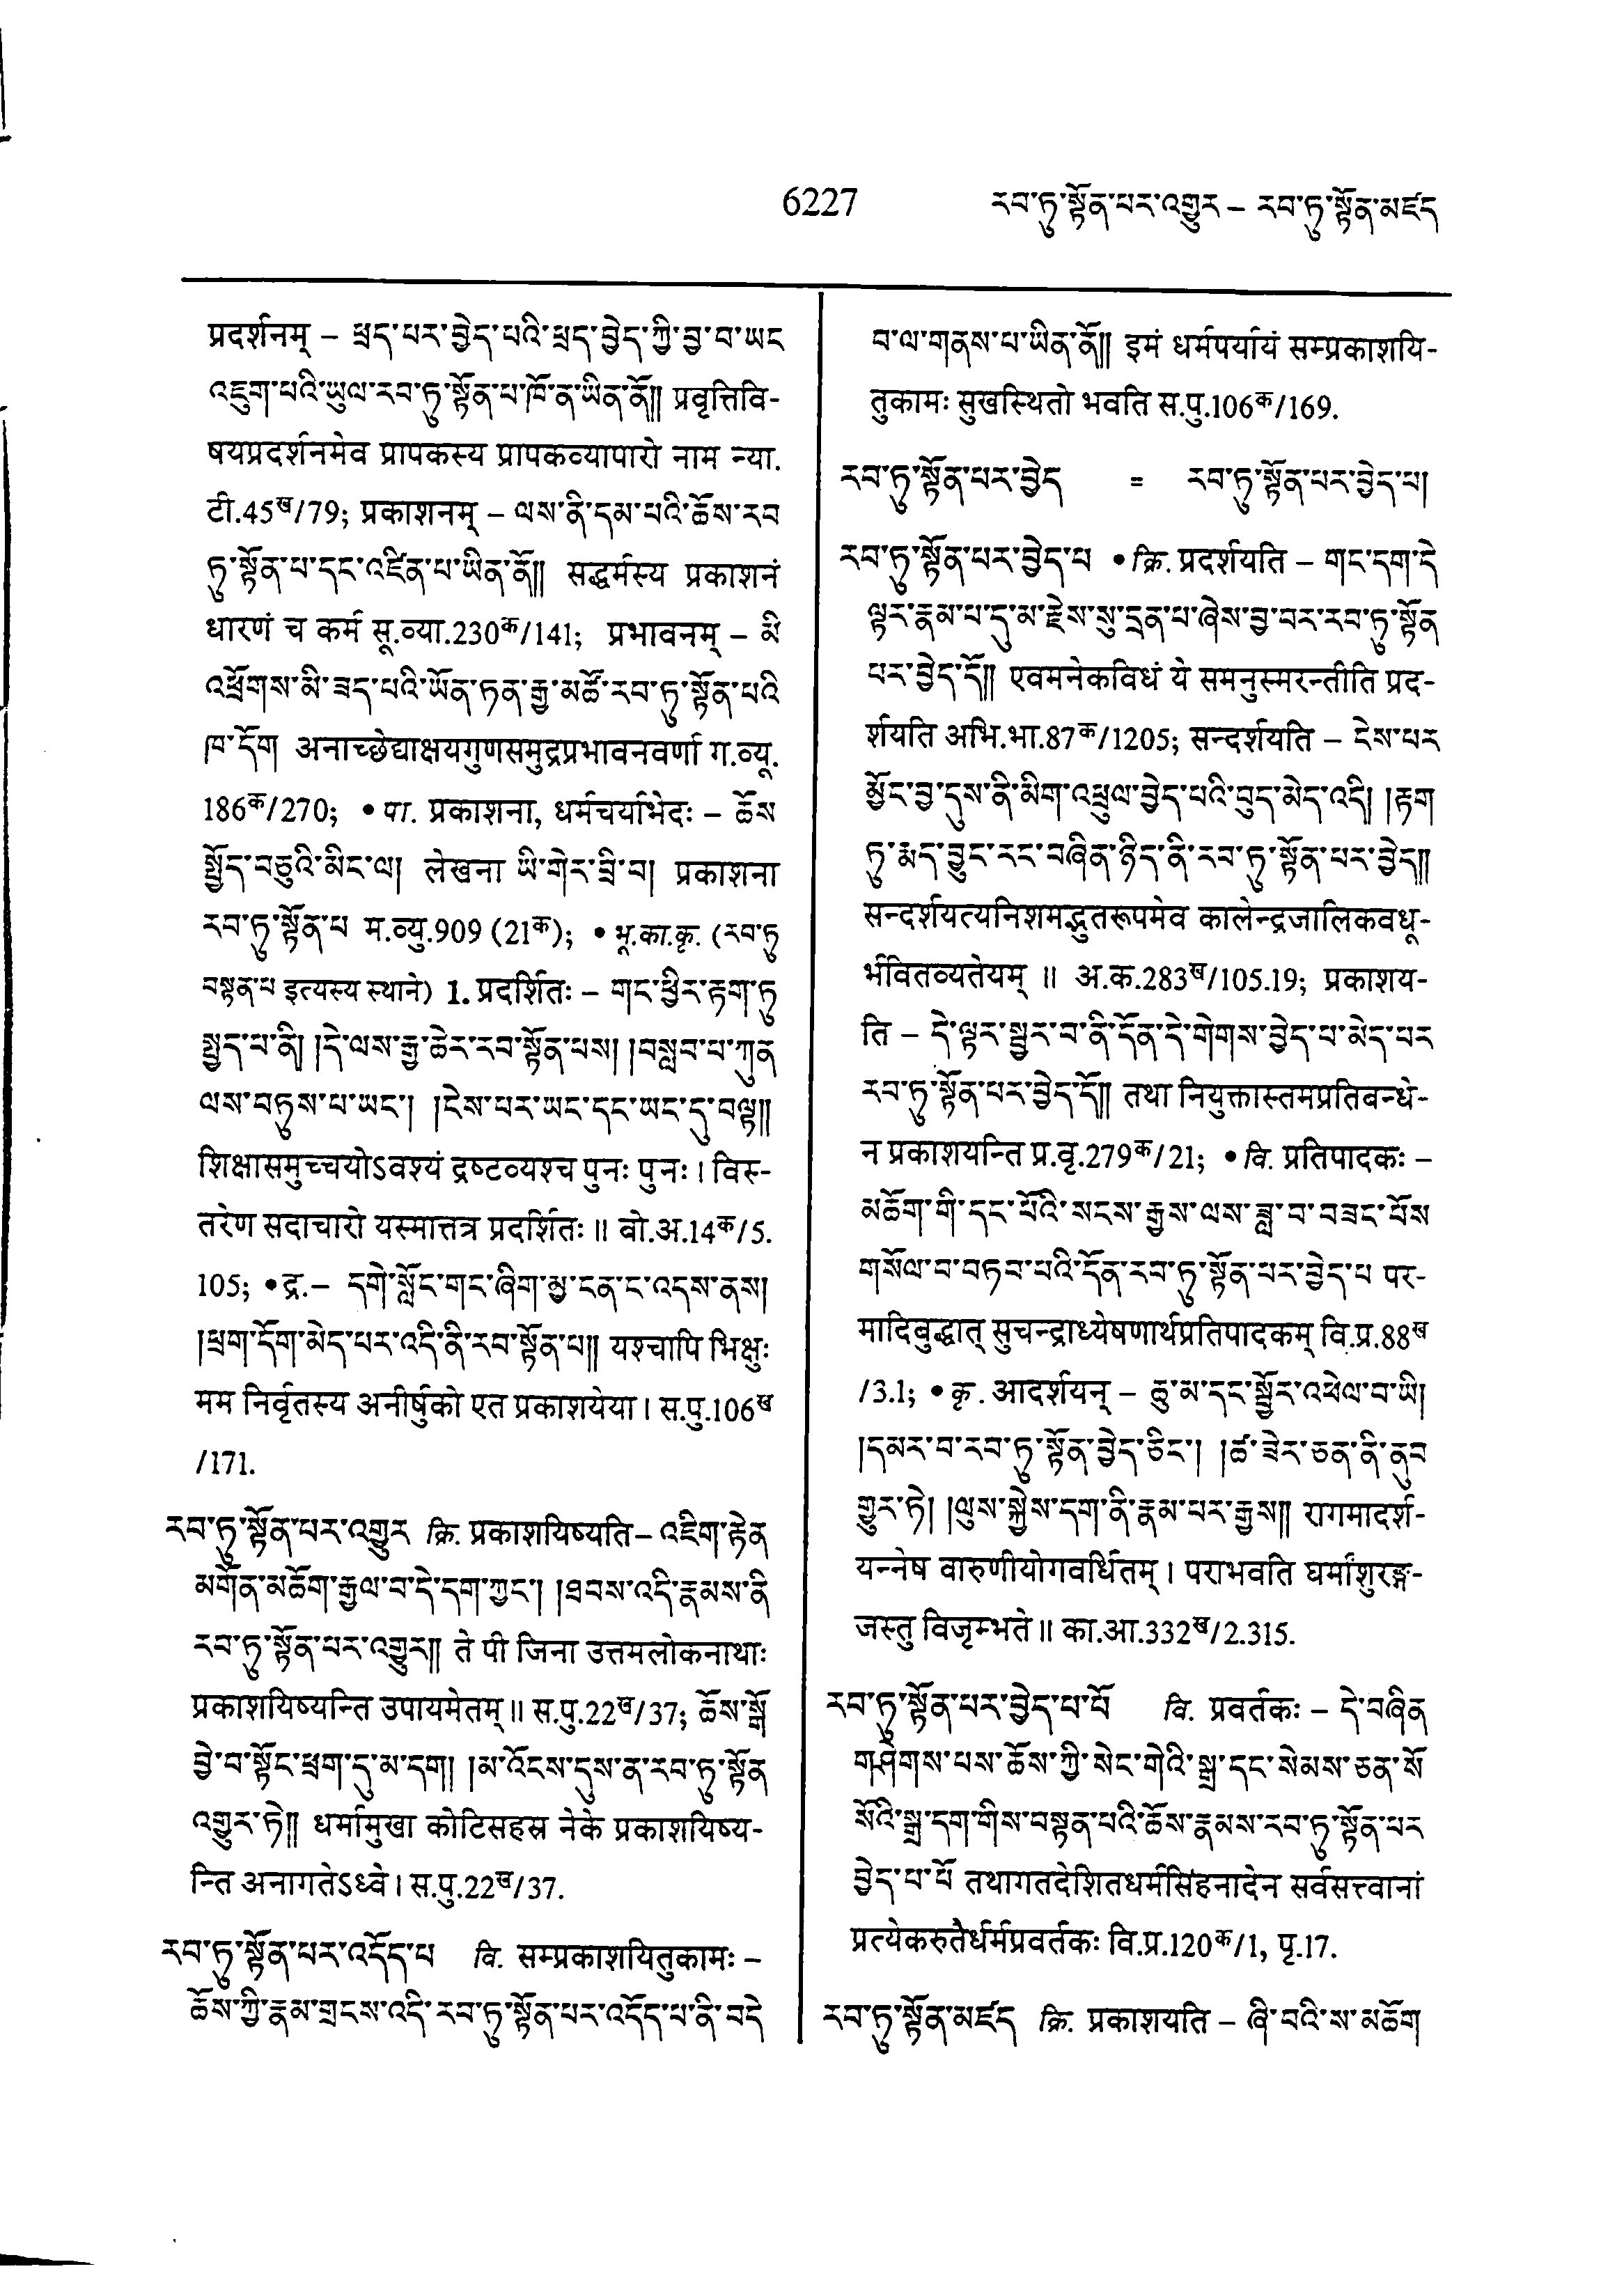 6227 རབ་ཏུ་སྟོན་པར་འགྱུར – རབ་ཏུ་སྟོན་མཛད
प्रदर्शनम् – ཕྲད་པར་བྱེད་པའི་ཕྲད་བྱེད་ཀྱི་བྱ་བ་ཡང
འཇུག་པའི་ཡུལ་རབ་ཏུ་སྟོན་པ་ཁོ་ན་ཡིན་ནོ།། प्रवृत्तिवि-
षयप्रदर्शनमेव प्रापकस्य प्रापकव्यापारो नाम न्या.
टी.45ख/79; प्रकाशनम् – ལས་ནི་དམ་པའི་ཆོས་རབ
ཏུ་སྟོན་པ་དང་འཛིན་པ་ཡིན་ནོ།། सद्धर्मस्य प्रकाशनं
धारणं च कर्म सू.व्या.230क/141; प्रभावनम् – མི
འཕྲོགས་མི་ཟད་པའི་ཡོན་ཏན་རྒྱ་མཚོ་རབ་ཏུ་སྟོན་པའི
ཁ་དོག། अनाच्छेद्याक्षयगुणसमुद्रप्रभावनवर्णा ग.व्यू.
186क/270; • पा. प्रकाशना, धर्मचर्याभेदः – ཆོས
སྤྱོད་བཅུའི་མིང་ལ། लेखना ཡི་གེར་བྲི་བ། प्रकाशना
རབ་ཏུ་སྟོན་པ म.व्यु.909 (21क); • भू.का.कृ. (རབ་ཏུ
བསྟན་པ इत्यस्य स्थाने) 1. प्रदर्शितः – གང་ཕྱིར་རྟག་ཏུ
སྤྱད་པ་ནི། །དེ་ལས་རྒྱ་ཆེར་རབ་སྟོན་པས། །བསླབ་པ་ཀུན
ལས་བཏུས་པ་ཡང་། །ངེས་པར་ཡང་དང་ཡང་དུ་བལྟ།།
शिक्षासमुच्चयोऽवश्यं द्रष्टव्यश्च पुनः पुनः । विस्-
तरेण सदाचारो यस्मात्तत्र प्रदर्शितः ॥ बो.अ.14क/5.
105; • द्र.– དགེ་སློང་གང་ཞིག་མྱ་ངན་ང་འདས་ནས།
།ཕྲག་དོག་མེད་པར་འདི་ནི་རབ་སྟོན་པ།། यश्चापि भिक्षुः
मम निर्वृतस्य अनीर्षुको एत प्रकाशयेया । स.पु.106ख
/171.
རབ་ཏུ་སྟོན་པར་འགྱུར क्रि. प्रकाशयिष्यति– འཇིག་རྟེན
མགོན་མཆོག་རྒྱལ་བ་དེ་དག་ཀྱང་། །ཐབས་འདི་རྣམས་ནི
རབ་ཏུ་སྟོན་པར་འགྱུར།། ते पी जिना उत्तमलोकनाथाः
प्रकाशयिष्यन्ति उपायमेतम् ॥ स.पु.22ख/37; ཆོས་སྒོ
བྱེ་བ་སྟོང་ཕྲག་དུ་མ་དག། །མ་འོངས་དུས་ན་རབ་ཏུ་སྟོན
འགྱུར་ཏེ།། धर्मामुखा कोटिसहस्र नेके प्रकाशयिष्य-
न्ति अनागतेऽध्वे । स.पु.22ख/37.
རབ་ཏུ་སྟོན་པར་འདོད་པ वि. सम्प्रकाशयितुकामः –
ཆོས་ཀྱི་རྣམ་གྲངས་འདི་རབ་ཏུ་སྟོན་པར་འདོད་པ་ནི་བདེ
བ་ལ་གནས་པ་ཡིན་ནོ།། इमं धर्मपर्यायं सम्प्रकाशयि-
तुकामः सुखस्थितो भवति स.पु.106क/169.
རབ་ཏུ་སྟོན་པར་བྱེད = རབ་ཏུ་སྟོན་པར་བྱེད་པ།
རབ་ཏུ་སྟོན་པར་བྱེད་པ • क्रि. प्रदर्शयति – གང་དག་དེ
ལྟར་རྣམ་པ་དུ་མ་རྗེས་སུ་དྲན་པ་ཞེས་བྱ་བར་རབ་ཏུ་སྟོན
པར་བྱེད་དོ།། एवमनेकविधं ये समनुस्मरन्तीति प्रद-
र्शयति अभि.भा.87क/1205; सन्दर्शयति – ངེས་པར
མྱོང་བྱ་དུས་ནི་མིག་འཕྲུལ་བྱེད་པའི་བུད་མེད་འདི། །རྟག
ཏུ་རྨད་བྱུང་རང་བཞིན་ཉིད་ནི་རབ་ཏུ་སྟོན་པར་བྱེད།།
सन्दर्शयत्यनिशमद्भुतरूपमेव कालेन्द्रजालिकवधू-
र्भवितव्यतेयम् ॥ अ.क.283ख/105.19; प्रकाशय-
ति – དེ་ལྟར་སྦྱར་བ་ནི་དོན་དེ་གེགས་བྱེད་པ་མེད་པར
རབ་ཏུ་སྟོན་པར་བྱེད་དོ།། तथा नियुक्तास्तमप्रतिबन्धे-
न प्रकाशयन्ति प्र.वृ.279क/21; • वि. प्रतिपादकः –
མཆོག་གི་དང་པོའི་སངས་རྒྱས་ལས་ཟླ་བ་བཟང་པོས
གསོལ་བ་བཏབ་པའི་དོན་རབ་ཏུ་སྟོན་པར་བྱེད་པ पर-
मादिबुद्धात् सुचन्द्राध्येषणार्थप्रतिपादकम् वि.प्र.88ख
/3.1; • कृ. आदर्शयन् – ཆུ་མ་དང་སྦྱོར་འཕེལ་བ་ཡི།
།དམར་བ་རབ་ཏུ་སྟོན་བྱེད་ཅིང་། །ཚ་ཟེར་ཅན་ནི་ནུབ
གྱུར་ཏེ། །ལུས་སྐྱེས་དག་ནི་རྣམ་པར་རྒྱས།། रागमादर्श-
यन्नेष वारुणीयोगवर्धितम् । पराभवति घर्मांशुरङ्ग-
जस्तु विजृम्भते ॥ का.आ.332ख/2.315.
རབ་ཏུ་སྟོན་པར་བྱེད་པ་པོ वि. प्रवर्तकः – དེ་བཞིན
གཤེགས་པས་ཆོས་ཀྱི་སེང་གེའི་སྒྲ་དང་སེམས་ཅན་སོ
སོའི་སྒྲ་དག་གིས་བསྟན་པའི་ཆོས་རྣམས་རབ་ཏུ་སྟོན་པར
བྱེད་པ་པོ तथागतदेशितधर्मसिंहनादेन सर्वसत्त्वानां
प्रत्येकरुतैर्धर्मप्रवर्तकः वि.प्र.120क/1, पृ.17.
རབ་ཏུ་སྟོན་མཛད क्रि. प्रकाशयति – ཞི་བའི་ས་མཆོག